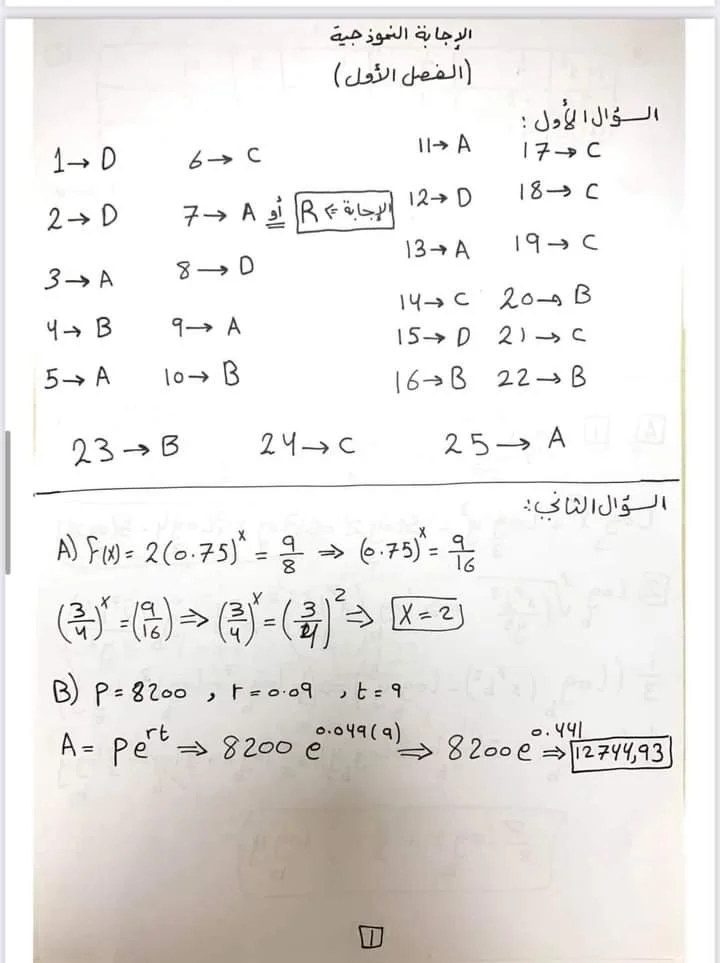 الإجابة النموذجية
(الفصل الأول)
السؤال الأول :
1→ D 6→ C 11→ A 17→ C
2→ D 7→ A أو الإجابة => R 12→ D 18→ C
3→ A 8→ D 13→ A 19→ C
4→ B 9→ A 14→ C 20→ B
5→ A 10→ B 15→ D 21→ C
16→ B 22→ B
23→ B 24→ C 25→ A
السؤال الثاني :
A) f(x) = 2(0.75)^x = 9/8 ⇒ (0.75)^x = 9/16
(3/4)^x = (9/16) ⇒ (3/4)^x = (3/4)^2 ⇒ x = 2
B) P = 8200 , r = 0.09 , t = 9
A = Pe^rt ⇒ 8200 e^0.049(9) ⇒ 8200 e^0.441 ⇒ 12744,93
1